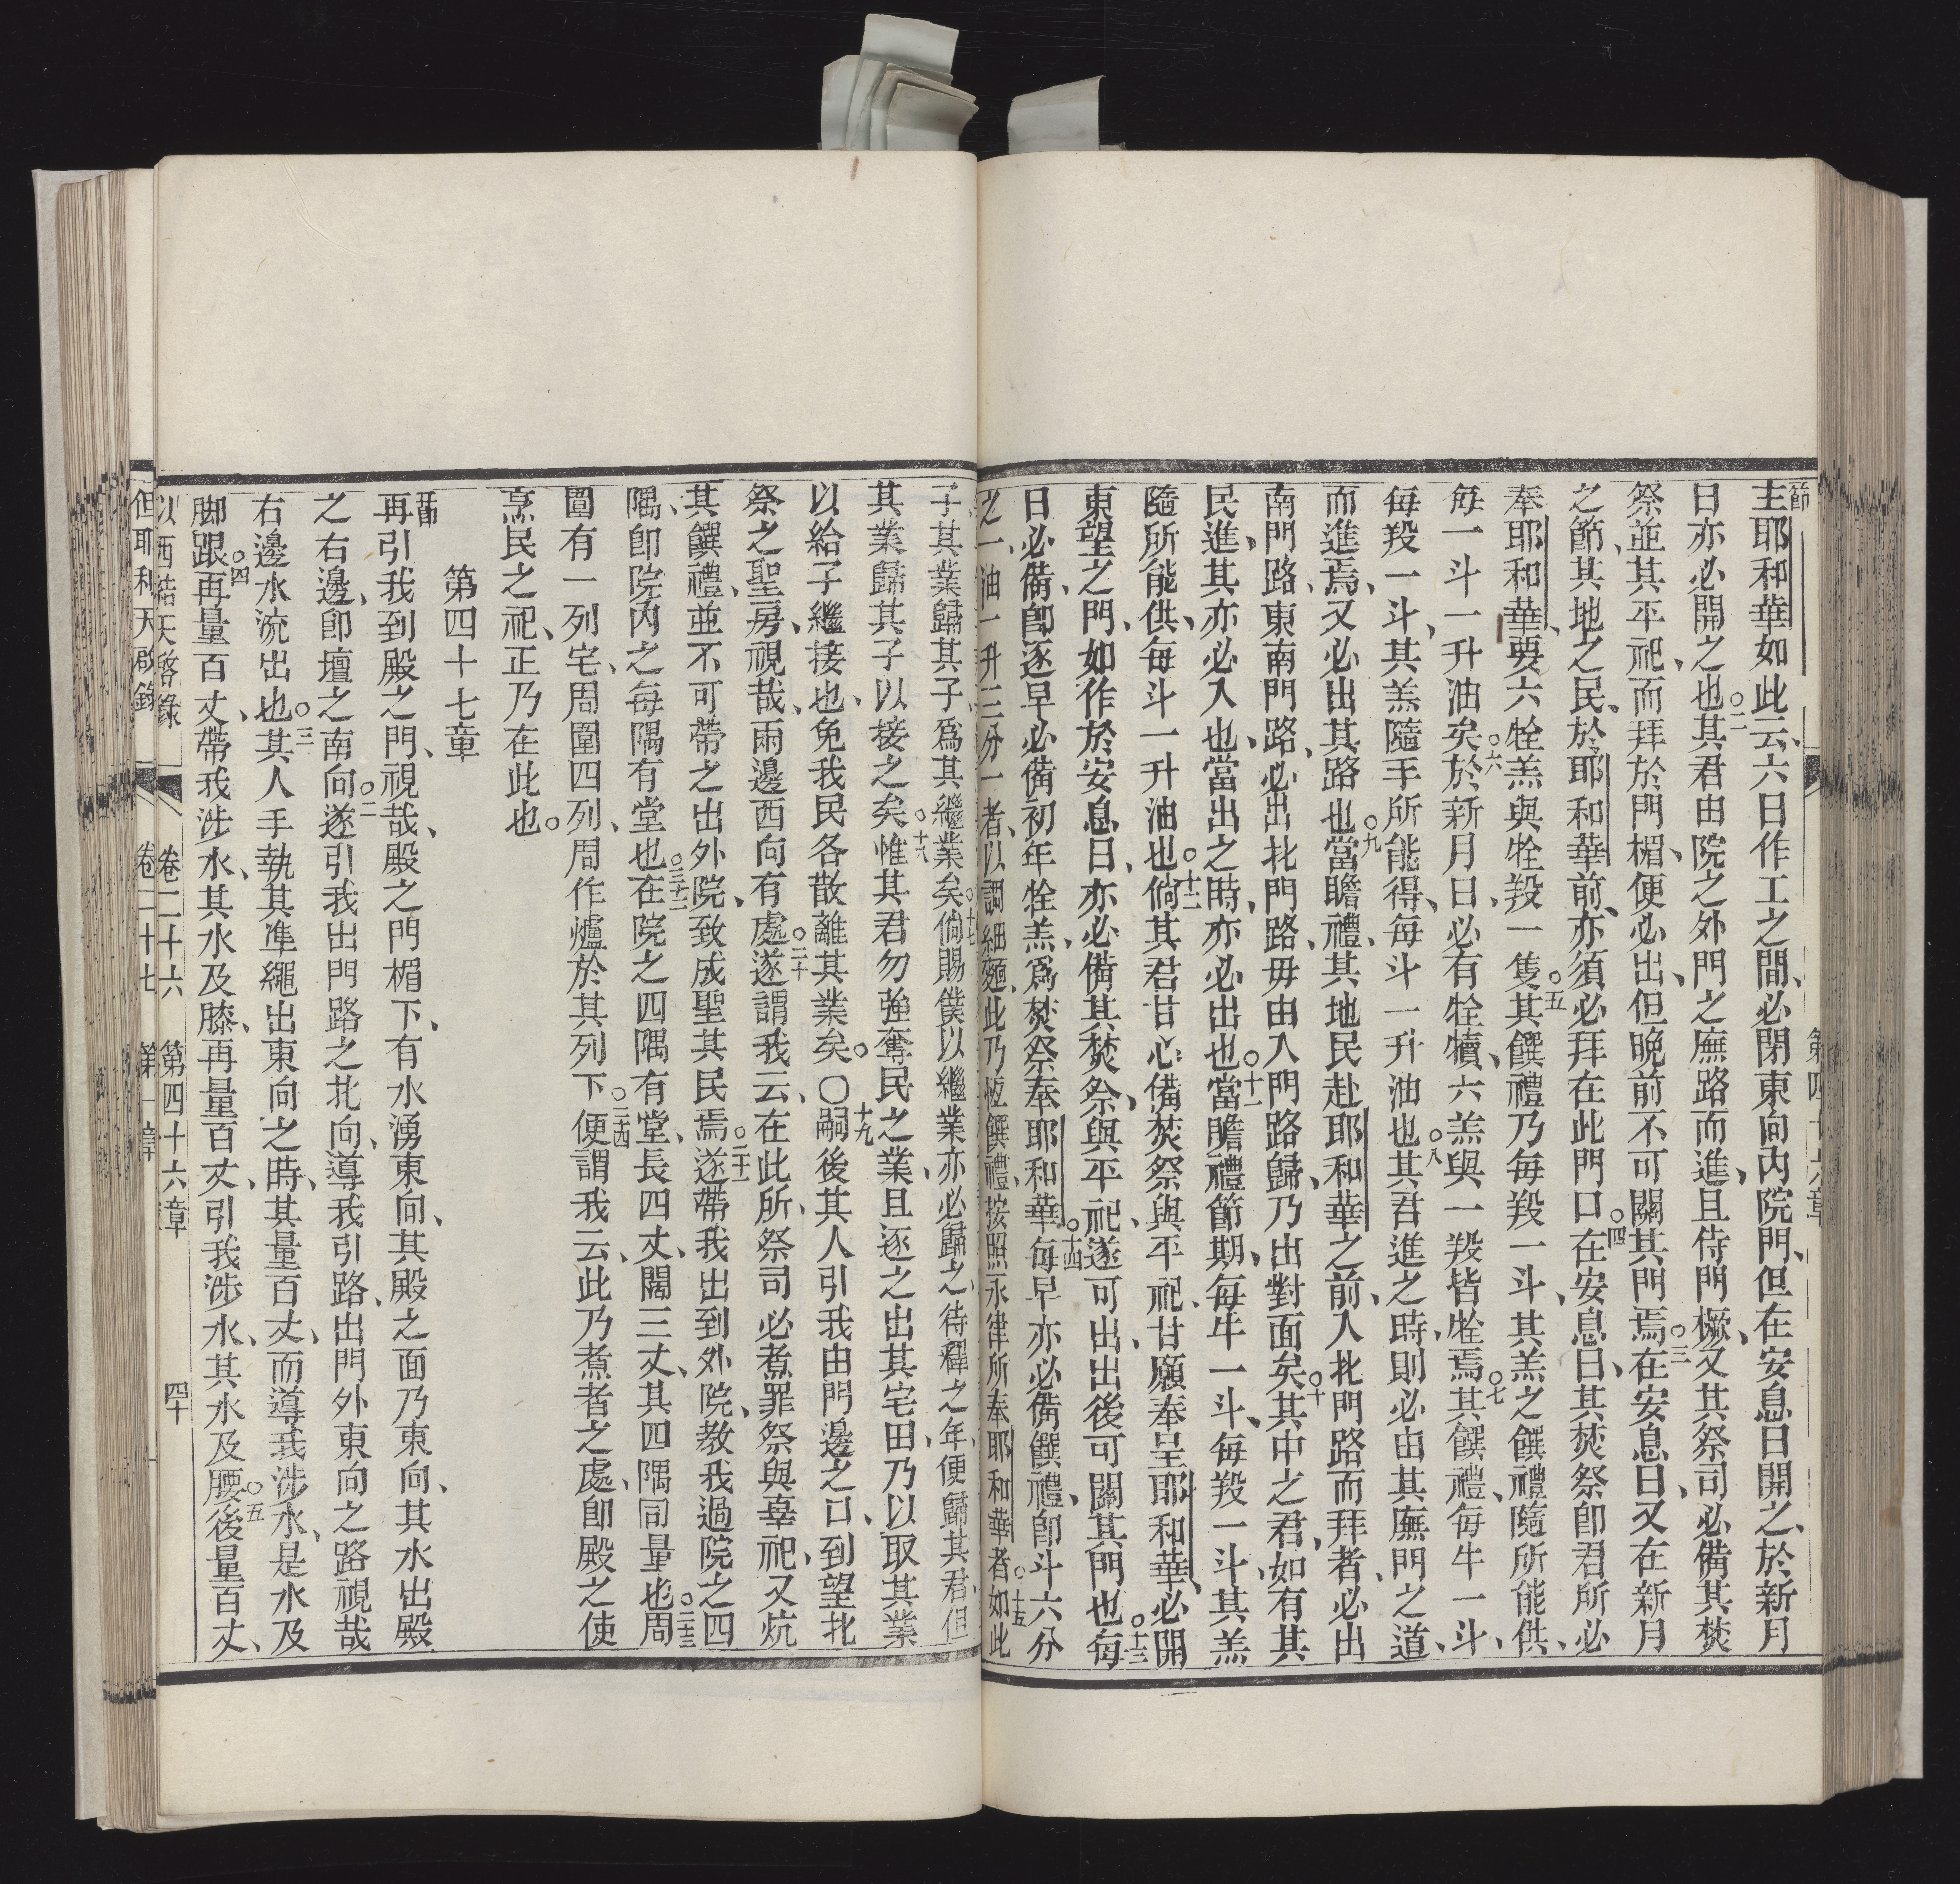 節
主耶和華如此云、六日作工之間、必閉東向內院門、但在安息日開之、於新月
日亦必開之也。二其君由院之外門之廡路而進、且侍門橛、又其祭司必備其焚
祭並其平祀、而拜於門楣、便必出、但晚前不可關其門焉。三在安息日、又在新月
之節、其地之民、於耶和華前、亦須必拜在此門口。四在安息日、其焚祭卽君所必
奉耶和華、要六牷羔與牷羖一隻。五其饌禮乃每羖一斗、其羔之饌禮隨所能供、
每一斗一升油矣。六於新月日、必有牷犢、六羔與一羖皆牷焉。七其饌禮、每牛一斗、
每羖一斗、其羔隨手所能得、每斗一升油也。八其君進之時、則必由其廡門之道
而進焉、又必出其路也。九當瞻禮、其地民赴耶和華之前、入北門路而拜者、必出
南門路、東南門路、必出北門路、毋由入門路歸、乃出對面矣。十其中之君、如有其
民進、其亦必入也、當出之時、亦必出也。十一當瞻禮節期、每牛一斗、每羖一斗、其羔
隨所能供、每斗一升油也。十二倘其君甘心備焚祭與平祀、甘願奉呈耶和華、必開
東望之門、如作於安息日、亦必備其焚祭、與平祀、遂可出、出後可關其門也。十三每
日必備、卽逐早必備初年牷羔、爲焚祭奉耶和華。十四每早亦必備饌禮、卽斗六分
之一、油一升三分一者、以調細麵、此乃恆饌禮、按照永律所奉耶和華者。十五如此
子其業歸其子、爲其繼業矣。十七倘賜僕以繼業、亦必歸之、待釋之年、便歸其君、但
其業歸其子以接之矣。十八惟其君勿強奪民之業、且逐之出其宅田、乃以取其業
以給子繼接也、免我民各散離其業矣。〇十九嗣後其人引我由門邊之口、到望北
祭之聖房、視哉、兩邊西向有處。二十遂謂我云、在此所、祭司必煮罪祭與辜祀、又炕
其饌禮、並不可帶之出外院、致成聖其民焉。二十一遂帶我出到外院、教我過院之四
隅、卽院內之每隅有堂也。二十二在院之四隅有堂、長四丈、闊三丈、其四隅同量也。二十三周
圍有一列宅、周圍四列、周作爐於其列下。二十四便謂我云、此乃煮者之處、卽殿之使
烹民之祀、正乃在此也。
第四十七章
一節
再引我到殿之門、視哉、殿之門楣下、有水湧東向、其殿之面乃東向、其水出殿
之右邊、卽壇之南向。二遂引我出門路之北向、導我引路、出門外東向之路視哉
右邊水流出也。三其人手執其準繩出東向之時、其量百丈、而導我涉水、是水及
脚跟。四再量百丈、帶我涉水、其水及膝、再量百丈、引我涉水、其水及腰。五後量百丈、
以西結天啓錄　卷二十六　第四十六章　四十
但耶利天啟錄　卷二十七　第一章